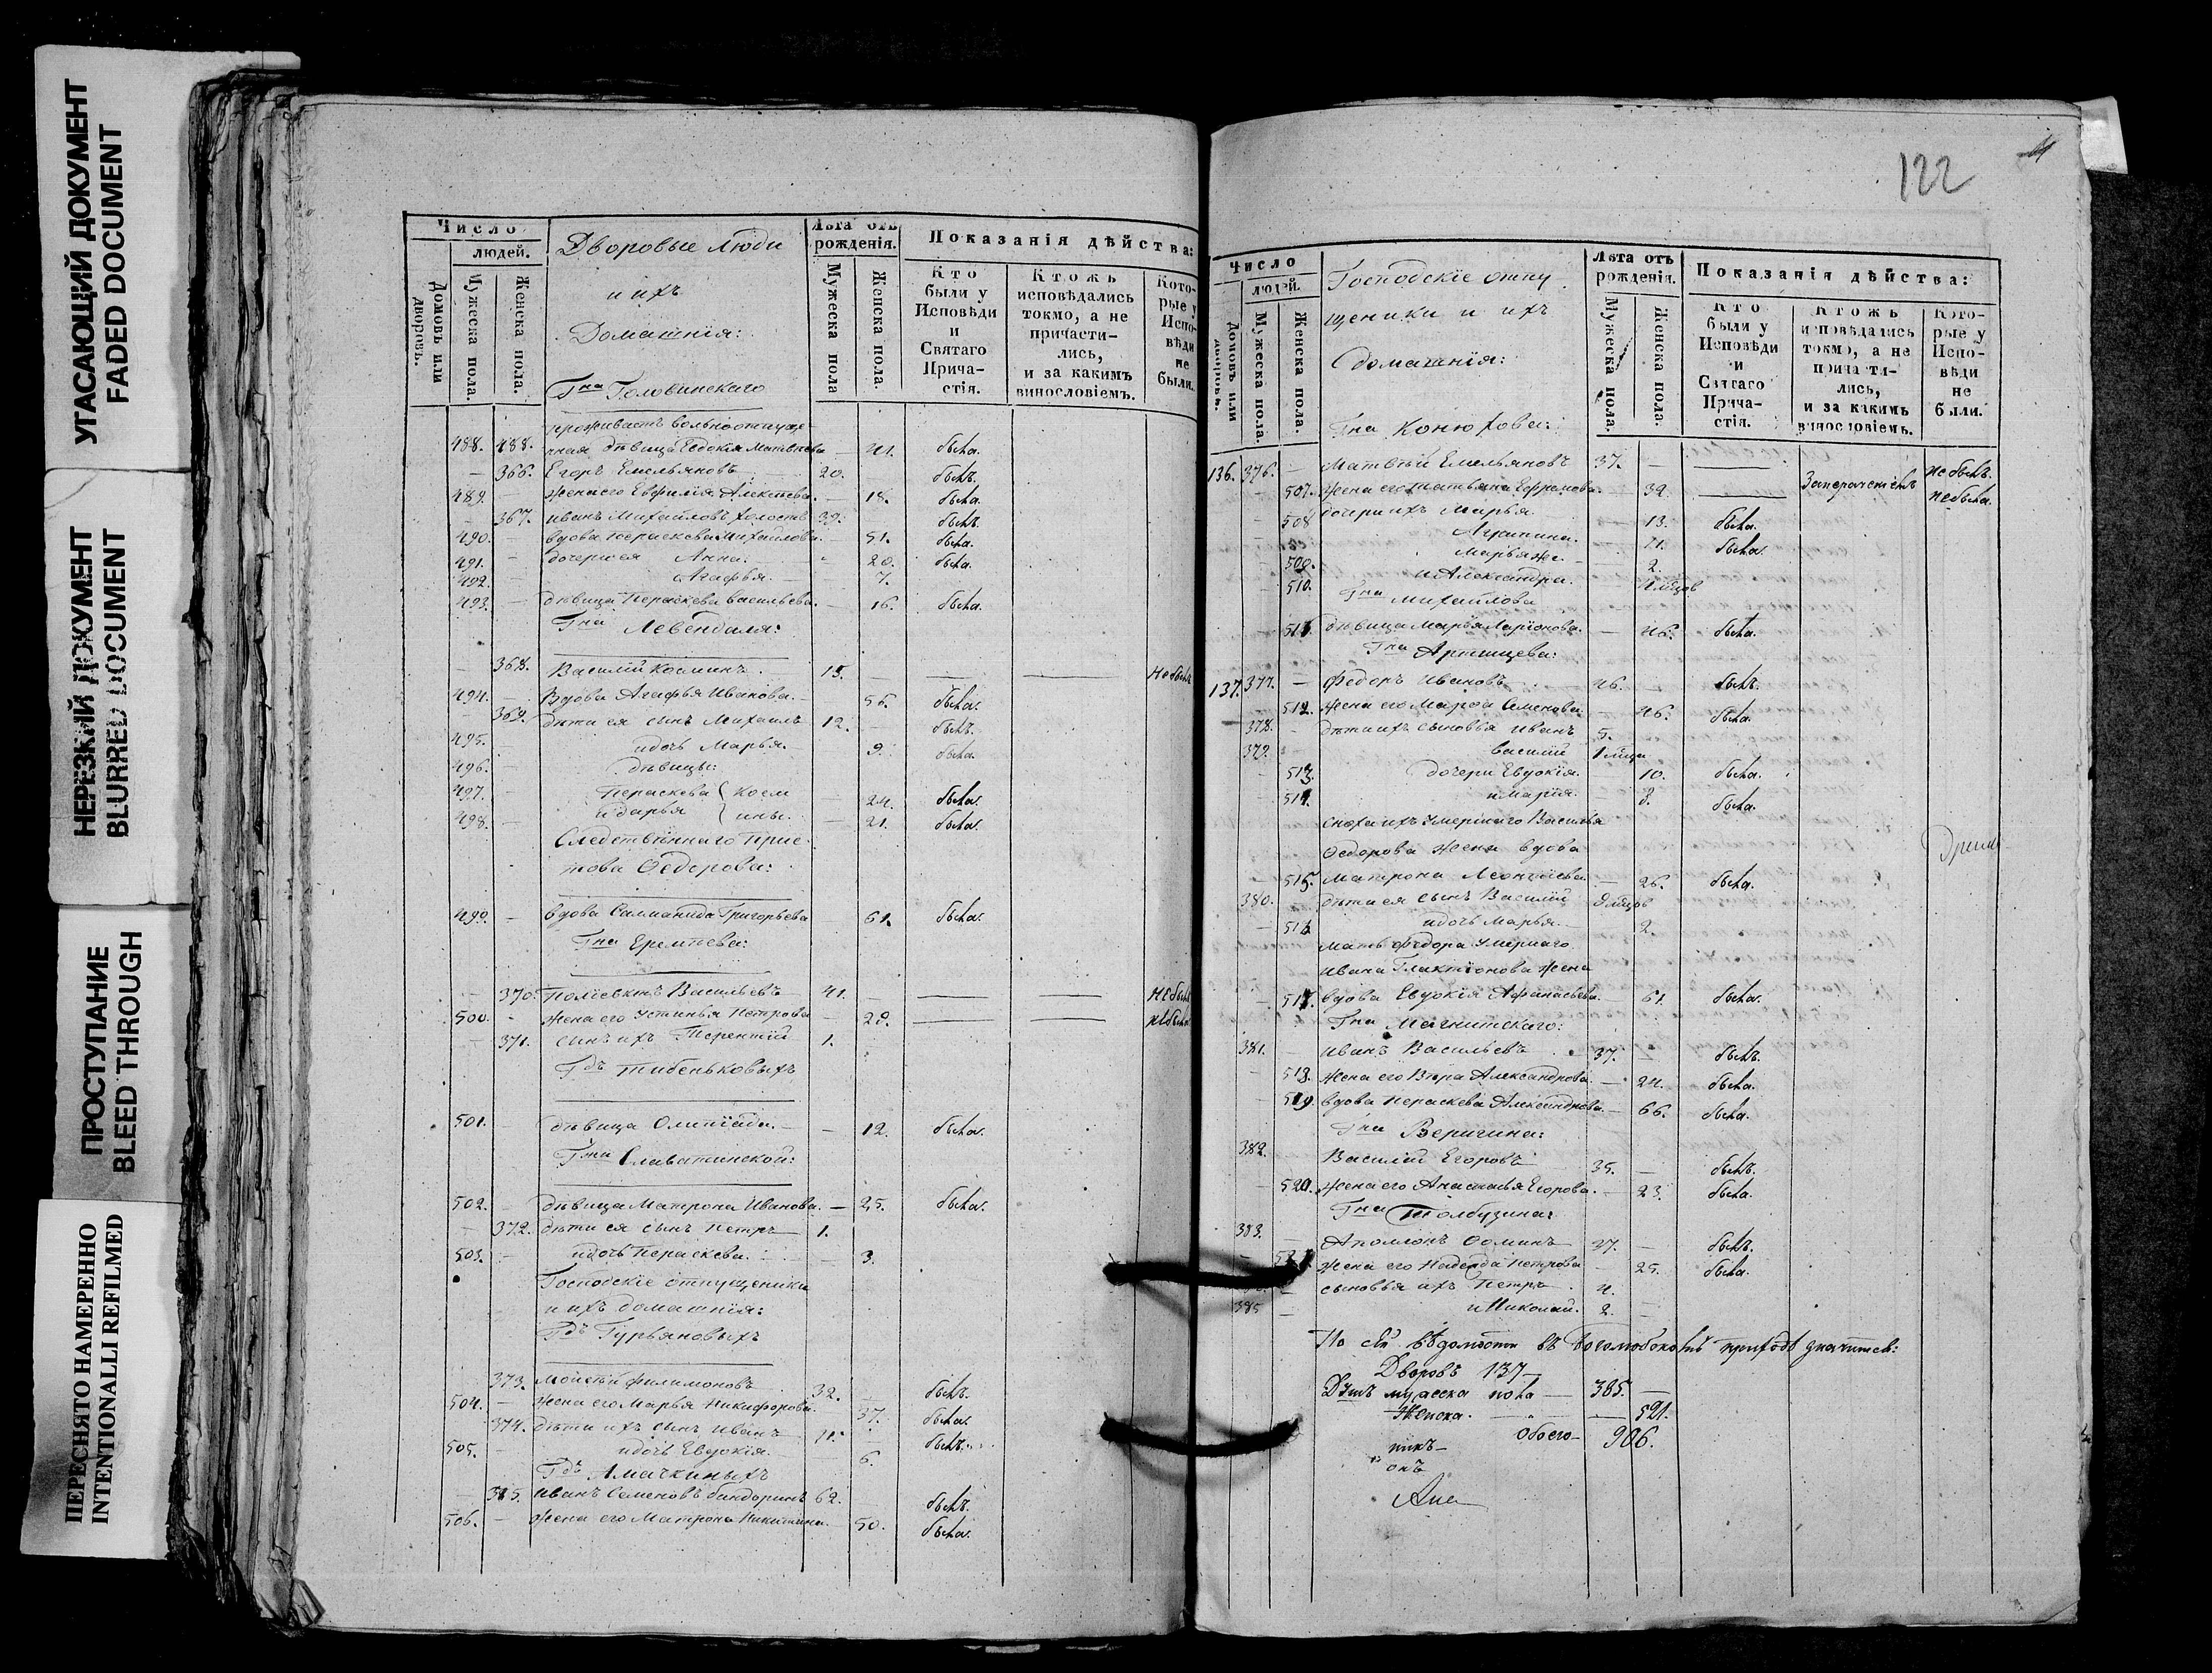 УГАСАЮЩИЙ ДОКУМЕНТ
FADED DOCUMENT
НЕРЕЗКИЙ ДОКУМЕНТ
BLURRED DOCUMENT
ПРОСТУПАНИЕ
BLEED THROUGH
ПЕРЕСНЯТО НАМЕРЕННО
INTENTIONALLI REFILMED
Число
людей.
Домовъ или дворовъ.
Мужеска пола.
Женска пола.
Дворовые люди
и ихъ
Домашнія:
Гна Головинскаго
Лѣта отъ рожденія.
Мужеска пола
Женска пола.
Показанія дѣйства:
Кто были у Исповѣди и Святаго Прича-стія.
Ктожъ исповѣдались токмо, а не причасти-лись, и за какимъ винословіемъ.
Кото-рые у Испо-вѣди не были.
проживаетъ вольноотпуще-
488. 488. нная дѣвица Евдокія Матвѣева — 41. была.
— 366. Егоръ Емельяновъ 20. былъ.
489. — жена его Евфимія Алексѣева. — 18. была.
— 367. Иванъ Михайловъ холостъ 39. былъ.
490. — вдова Пераскева Михайлова. — 51. была.
491. — дочери ея Анна. 20. была.
492. Агафья. — 7.
493. — дѣвица Пераскева Васильева. — 16. была.
Гна Левендаля:
— 368. Василій Косминъ. 15. — — — Не былъ
494. — Вдова Агафья Иванова. — 55. была.
— 369. дѣти ея сынъ Михаилъ 12. — былъ.
495. и дочь Марья. 9. была.
496. — дѣвицы:
497. — Пераскева } Косм 24. была.
498. — и Дарья } ины. — 21. была.
Слѣдственнаго Прис-
това Ѳедорова:
499. — вдова Саломанида Григорьева 61. была.
Гна Еремѣева:
— 370. Поліевктъ Васильевъ 41. — — — Не былъ
500. — жена его Устинья Петрова — 28. — — не была
— 371. сынъ ихъ Терентій 1.
Гдъ Тибеньковыхъ
501. дѣвица Олимпіада. — — 12. была.
Гжи Славатинской:
502. — дѣвица Матрона Иванова. — 25. была.
— 372. дѣти ея сынъ Петръ 1.
503. — и дочь Пераскева. — 3.
Господскіе отпущеники
и ихъ домашнія:
Гдъ Гурьяновыхъ
373. Моисей Филимоновъ 32. — былъ.
504. — жена его Марья Никифорова. 37. была.
374. дѣти ихъ сынъ Иванъ 11. былъ.
505. — и дочь Евдокія. 6.
Гдъ Амачкиныхъ
— 375. Иванъ Семеновъ Бандоринъ 62. былъ.
506. — жена его Матрона Никитина. 50. была.
122
Число
людей.
Домовъ или дворовъ.
Мужеска пола.
Женска пола.
Господскіе отпу
щеники и ихъ
домашнія:
Гна Конюхова:
Лѣта отъ рожденія.
Мужеска пола.
Женска пола.
Показанія дѣйства:
Кто были у Исповѣди и Святаго Прича-стія.
Ктожъ исповѣдались токмо, а не прича сти-лись, и за какимъ винословіемъ.
Кото-рые у Испо-вѣди не были.
136. 376. — Матвѣй Емельяновъ 37. — — не былъ.
507. жена его Татьяна Ефремова. — 39. — не была.
508 дочери ихъ Марья — 13. была.
Агрипина. — 11. была.
509. Марья же. — 2.
510. и Александра.
Гна Михайлова
511. дѣвица Марья Ларіонова. — 46. была.
Гна Артищева:
137. 377. — Федоръ Ивановъ 46. — былъ.
512. жена его Марѳа Семенова. — 46. была.
378. — дѣти ихъ сыновья Иванъ 5.
379. Василій
513. дочери Евдокія. 10. была.
514. и Марія. 8. была.
сноха ихъ умершаго Василья
Ѳедорова жена вдова
515. Матрона Леонтьева. — 26. была.
380. дѣти ея сынъ Василій
516. и дочь Марья. — 2.
мать Федора умершаго
Ивана Галактіонова жена
517. вдова Евдокія Афанасьева. 61. была.
Гна Магнитскаго:
381. Иванъ Васильевъ 37. — былъ.
518. жена его Вѣра Александрова. — 24. была.
519. вдова Пераскева Александрова. — 66. была.
Гна Веригина:
382. Василій Егоровъ 35. — былъ.
520. жена его Анастасья Егорова. — 23. была.
Гна Толбузина:
383. Аполлонъ Ѳоминъ 37. — былъ.
521. жена его Надежда Петрова — 25. была.
сыновья ихъ Петръ 4.
385 — и Николай. 2. —
По сей вѣдомости въ приходѣ значится:
Дворовъ 137
Душъ мужеска пола — 385. —
Женска. — 521.
Обоего — 906.